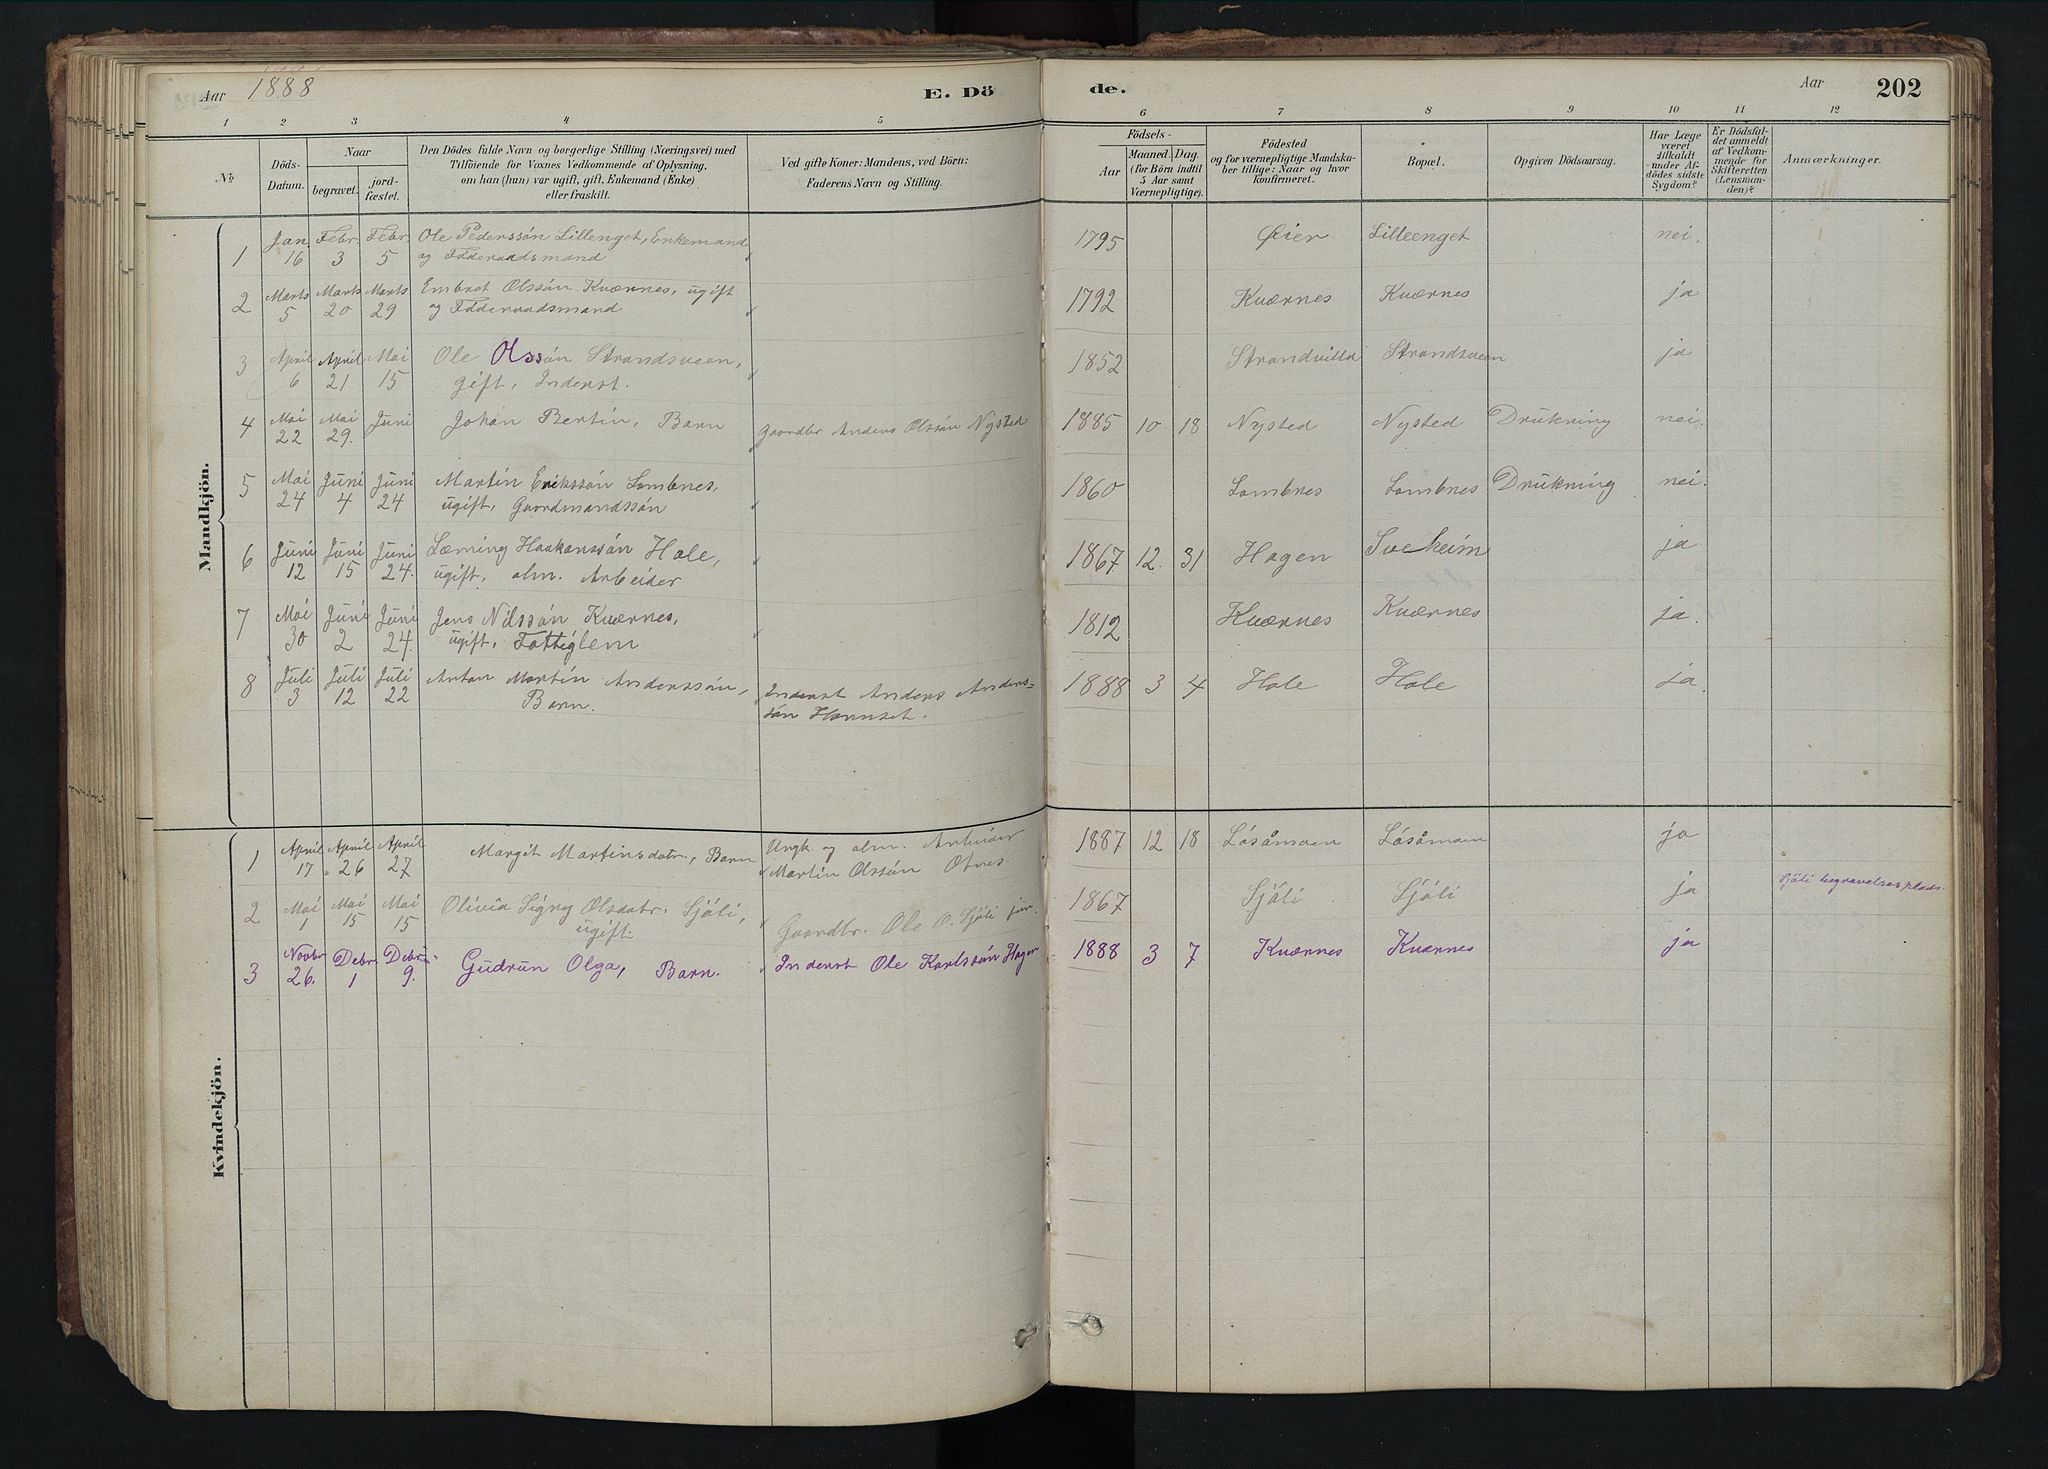 Aar 1888 E. Dö de. Aar 202
1 2 3 4 5 6 7 8 9 10 11 12
No
Döds-Datum.
Naar
begravet.
jord-fæstet.
Den Dödes fulde Navn og borgerlige Stilling (Næringsvei) med
Tilföiende for Voxnes Vedkommende af Oplysning,
om han (hun) var ugift, gift, Enkemand (Enke)
eller fraskilt.
Ved gifte Koner: Mandens, ved Börn:
Faderens Navn og Stilling.
Födsels-
Aar
Maaned. Dag.
(for Börn indtil
5 Aar samt
Værnepligtige).
Födested
og for værnepligtige Mandska-
ber tillige: Naar og hvor
konfirmeret.
Bopæl.
Opgiven Dödsaarsag.
Har Læge
været
tilkaldt
under Af-
dödes sidste
Sygdom?
Er Dödsfal-
det anmeldt
af Vedkom-
mende for
Skifteretten
(Lensman-
den)?
Anmærkninger.
Mandkjön.
1 Jan. 16 Febr. 3 Febr. 5 Ole Pederssön Lillenget, Enkemand 1795 Øier Lilleenget nei.
og Föderaadsmand
2 Marts 5 Marts 20 Marts 29 Embret Olssön Kværnes, ugift 1792 Kværnes Kværnes ja
og Föderaadsmand
3 April 6 April 21 Mai 15 Ole Olssön Strandsveen, 1852 Strandvilla Strandsveen ja
gift, Inderst.
4 Mai 22 Mai 29. Juni Johan Bertin, Barn Gaardbr Anders Olssön Nysted 1885 10 18 Nysted Nysted Drukning nei.
5 Mai 24 Juni 4 Juni 24 Martin Erikssön Lombnes, 1860 Lombnes Lombnes Drukning nei.
ugift, Gaardmandssön
6 Juni 12 Juni 15 Juni 24. Læming Haakonssön Hole, 1867 12. 31 Hagen Sveheim ja
ugift, alm. Arbeider
7 Mai 30 Juni 2 Juni 24. Jens Nilssön Kværnes, 1812 Kværnes Kværnes ja.
ugift, Fattiglem
8 Juli 3 Juli 12 Juli 22 Anton Martin Anderssön, Inderst Anders Anders= 1888 3 4 Hole Hole ja.
Barn. sön Hornset.
Kvindekjön.
1 April 17 April 26 April 27 Margit Martinsdatr., Barn Ungk. og alm. Arbeider 1887 12 18 Lösåmoen Lösåmoen ja
Martin Olssön Otnes.
2 Mai 1 Mai 15 Mai 15 Olivia Signy Olsdatr. Sjöli, Gaardbr. Ole O. Sjöli jun. 1867 Sjöli Sjöli ja Sjöli begravelsesplads.
ugift.
3 Novbr 26. Debr. 1 Debr. 9. Gudrun Olga, Barn. Inderst Ole Karlssön Hagen 1888 3 7 Kværnes Kværnes ja